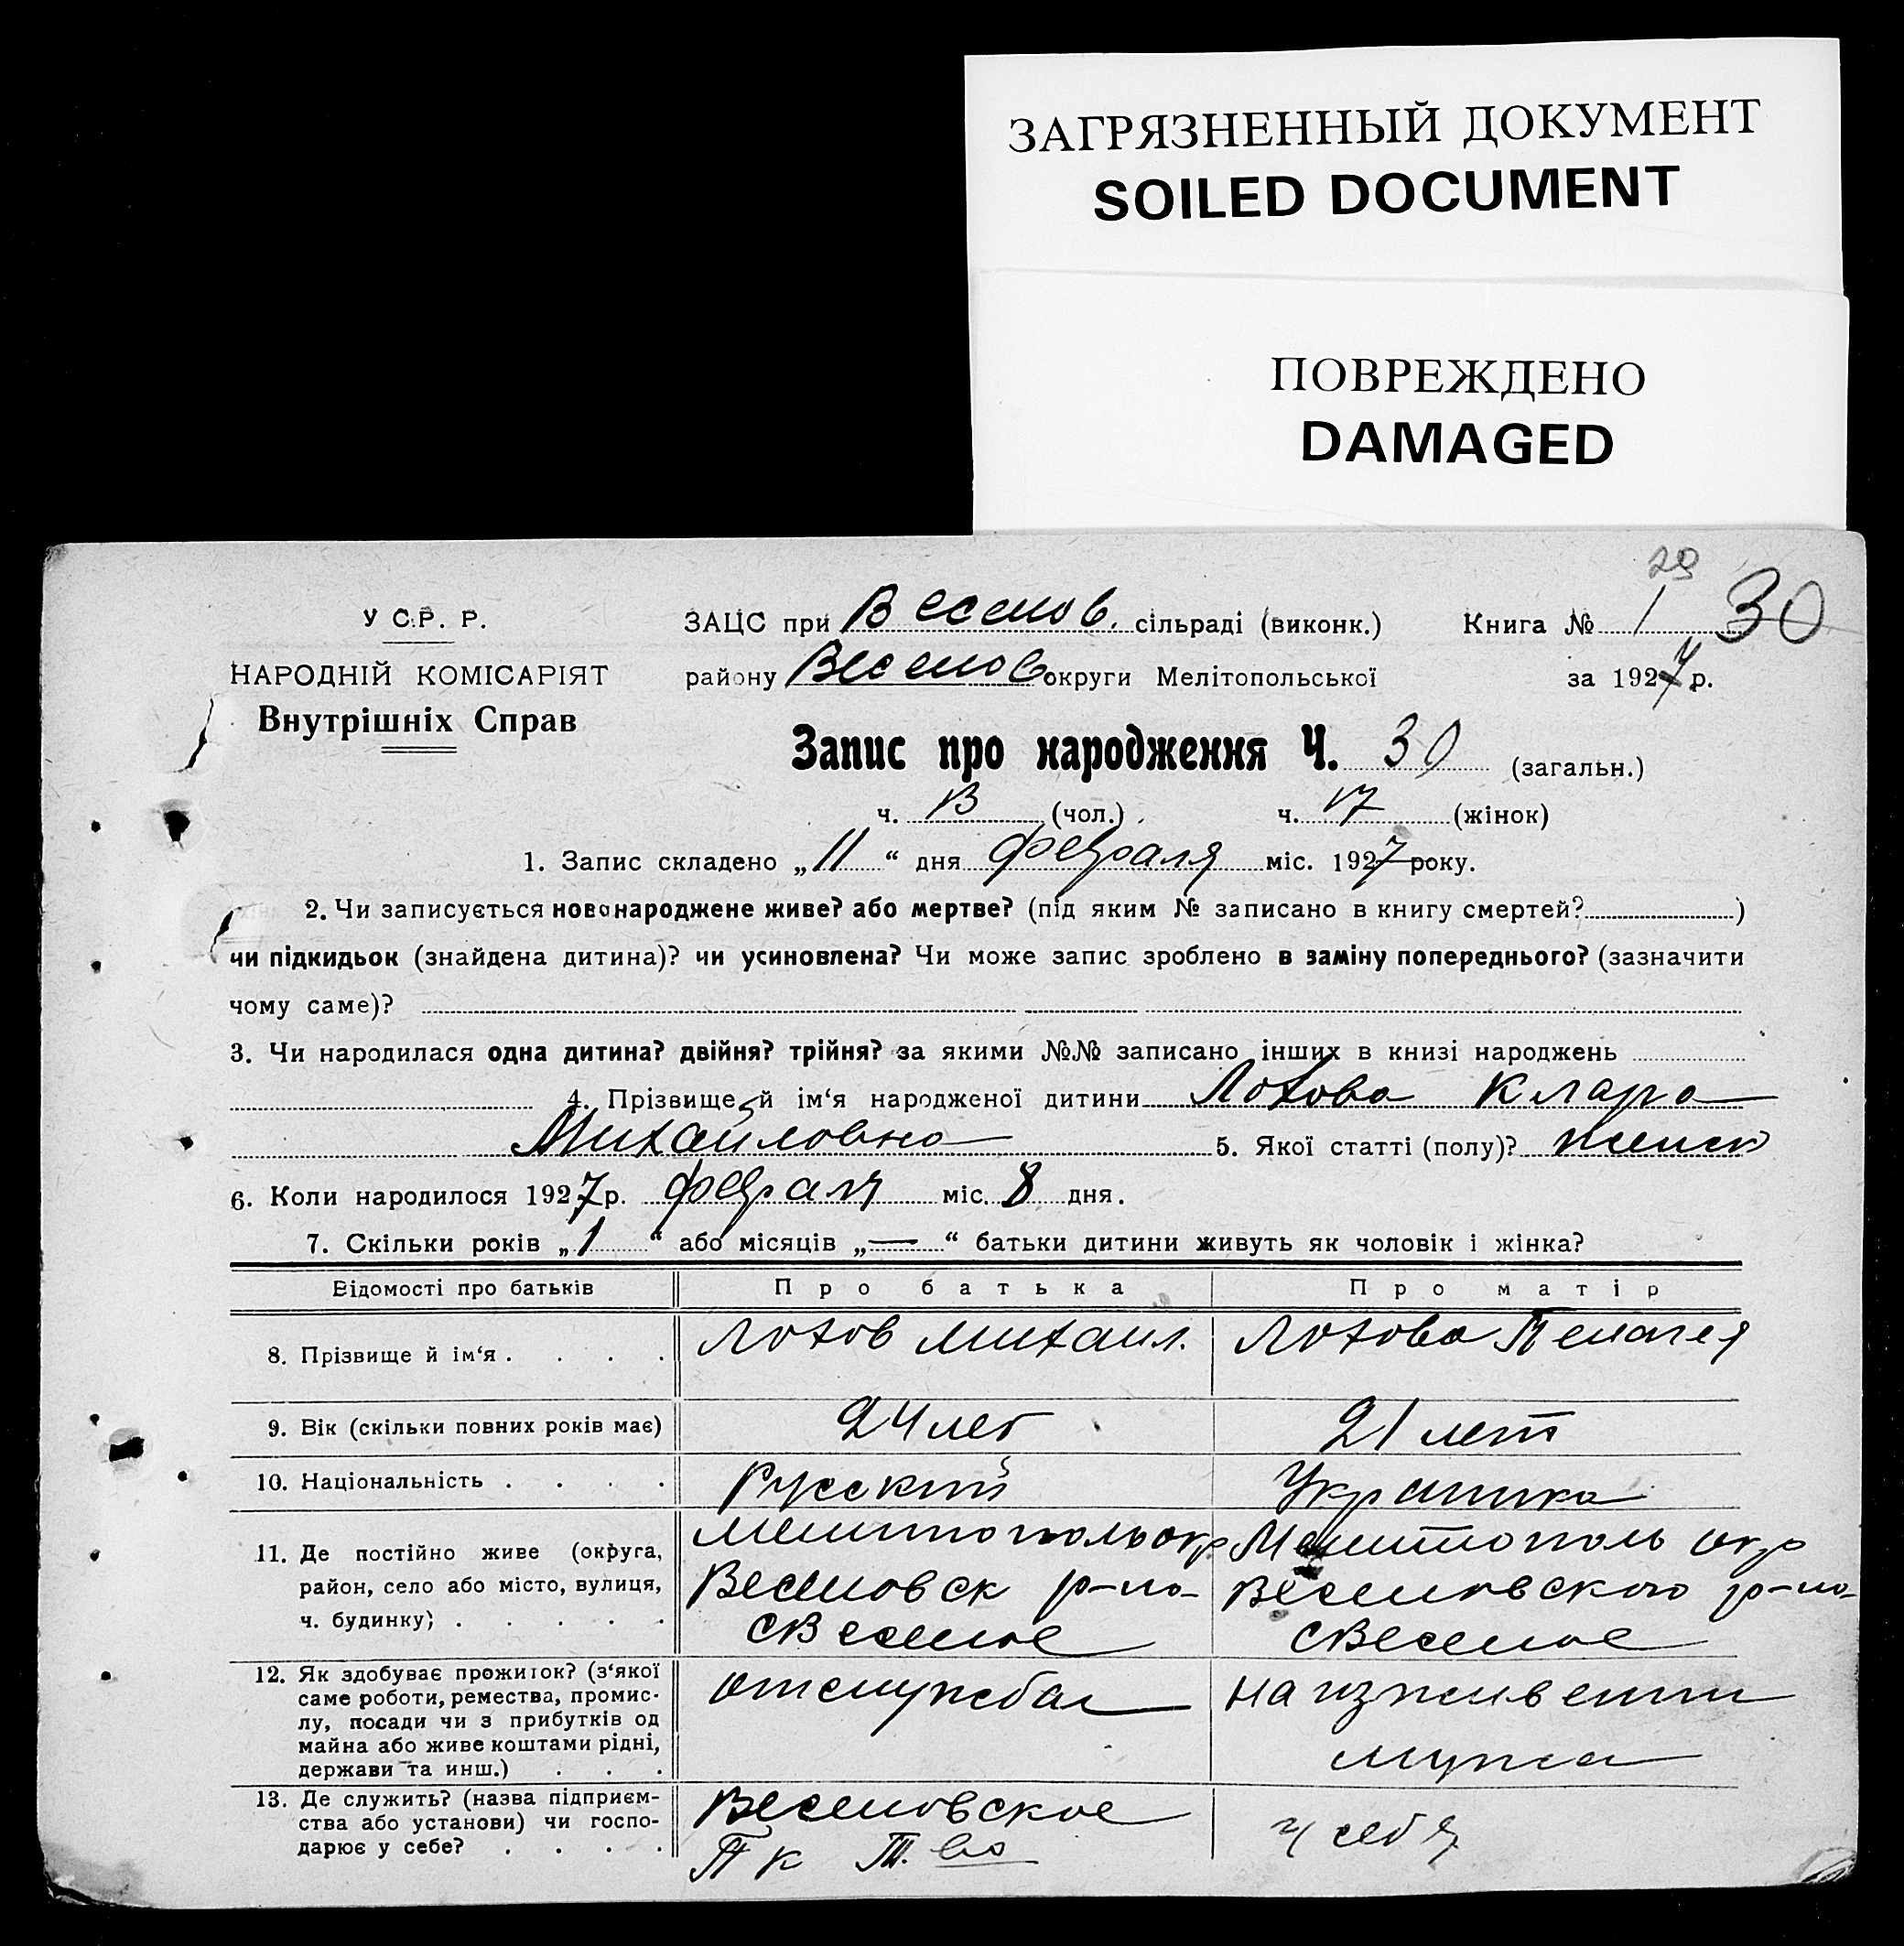 ЗАГРЯЗНЕННЫЙ ДОКУМЕНТ
SOILED DOCUMENT
ПОВРЕЖДЕНО
DAMAGED
29
У С.Р. Р.
ЗАЦС при Веселов. сільраді (виконк.) Книга № 1 30
НАРОДНІЙ КОМІСАРІЯТ
району Веселов округи Мелітопольської за 1927 р.
Внутрішніх Справ
Запис про народження Ч. 30 (загальн.)
ч. 13 (чол.) ч. 17 (жінок)
1. Запис складено „11“ дня февраля міс. 1927 року.
2. Чи записується новонароджене живе? або мертве? (під яким № записано в книгу смертей? )
чи підкидьок (знайдена дитина)? чи усиновлена? Чи може запис зроблено в заміну попереднього? (зазначити
чому саме)?
3. Чи народилася одна дитина? двійня? трійня? за якими №№ записано інших в книзі народжень
4. Прізвище й ім‘я народженої дитини Лохова Клара
Михайловна 5. Якої статті (полу)? женск
6. Коли народилося 1927 р. февраля міс. 8 дня.
7. Скільки років „1“ або місяців „—“ батьки дитини живуть як чоловік і жінка?
Відомості про батьків Про батька Про матір
8. Прізвище й ім‘я . . . . Лохов Михаил. Лохова Пелагея
9. Вік (скільки повних років має) 24 лет 21 лет
10. Національність . . . . Русский Украинка
11. Де постійно живе (округа, Мелитополь окр Мелитополь окр
район, село або місто, вулиця, Веселовск р-на Веселовского р-на
ч. будинку) . . . . . с Веселое с Веселое
12. Як здобуває прожиток? (з‘якої
саме роботи, ремества, промис-
лу, посади чи з прибутків од
майна або живе коштами рідні,
держави та инш.) . . .
от службы на изживении
мужа
13. Де служить? (назва підприєм-
ства або установи) чи госпо-
дарює у себе? . . . .
Веселовское
П К Т. во у себя